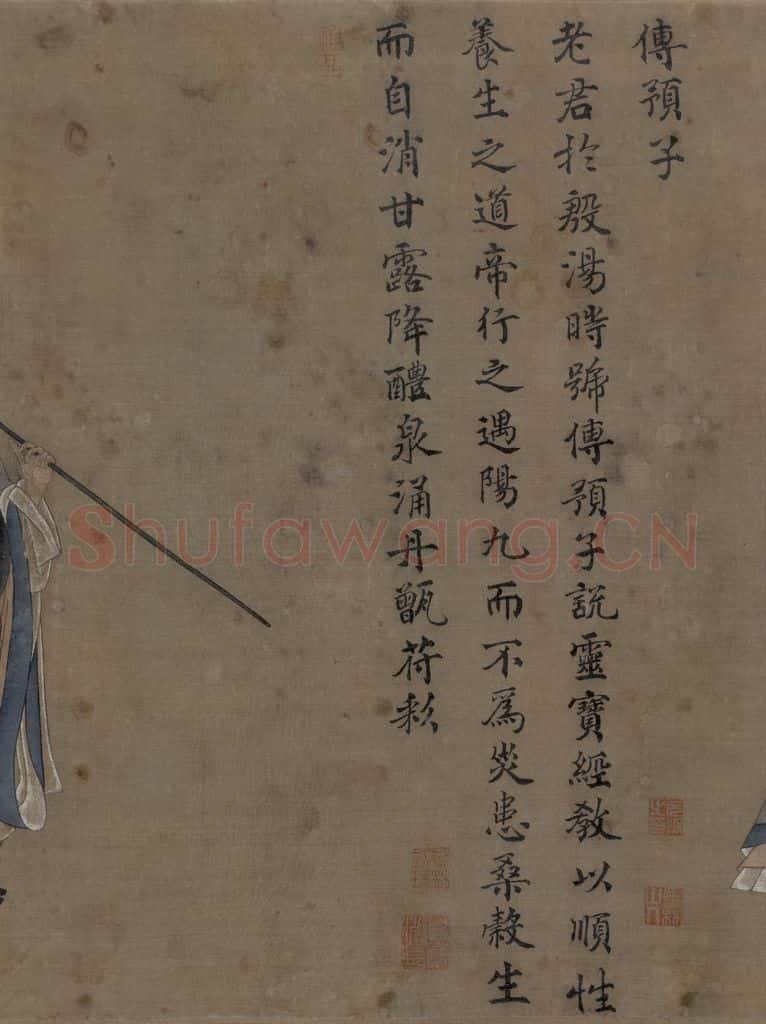 傅預子
老君扵殷湯時號傅預子說靈寶經教以順性
養生之道帝行之遇陽九而不為災患桑穀生
而自消甘露降醴泉涌丹甑荷
Shufawang.CN